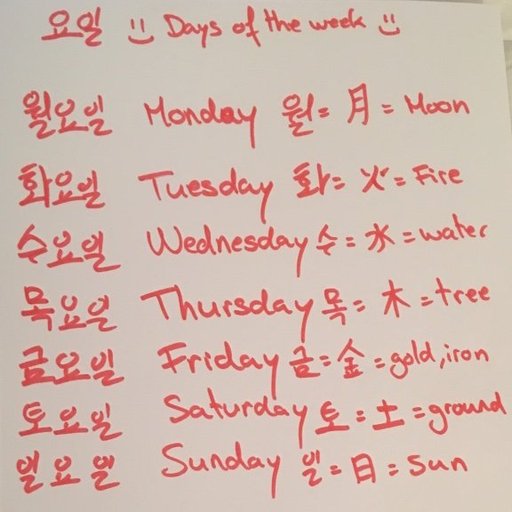 요일 :) Days of the week :)
월요일 Monday 월= 月 = Moon
화요일 Tuesday 화= 火 = Fire
수요일 Wednesday 수= 水 = water
목요일 Thursday 목= 木 = tree
금요일 Friday 금= 金 = gold, iron
토요일 Saturday 토= 土 = ground
일요일 Sunday 일= 日 = sun